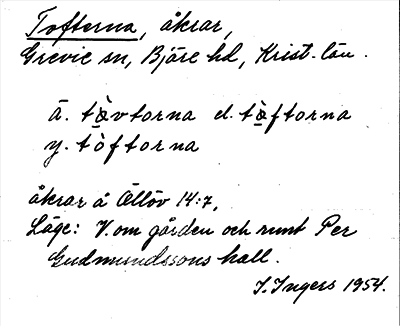 Tofterna, åkrar,
Grevie sn, Bjäre hd, Krist. län.
ä. tὰvtorna el. tὰftorna
y. tòftorna
åkrar å Öllöv 14:7,
Läge: V. om gården och runt Per
Gudmundssons hall.
I. Ingers 1954.